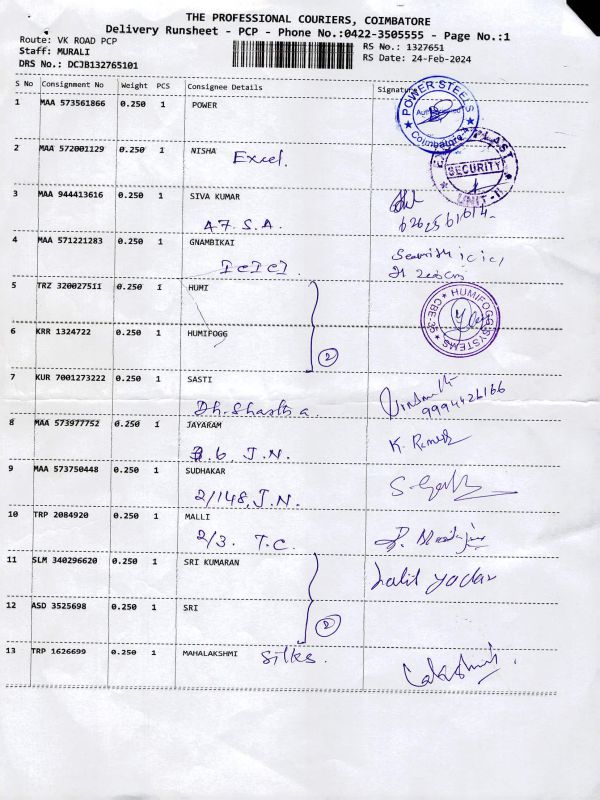 THE PROFESSIONAL COURIERS, COIMBATORE
Delivery Runsheet - PCP - Phone No.:0422-3505555 - Page No.:1
Route: VK ROAD PCP
RS No.: 1327651
Staff: MURALI
RS Date: 24-Feb-2024
DRS No.: DCJB132765101
S No Consignment No Weight PCS Consignee Details Signature
1 MAA 573561866 0.250 1 POWER
POWER STEELS
Coimbatore
2 MAA 572001129 0.250 1 NISHA
Excel.
PLAST
SECURITY
UNIT-II
3 MAA 944413616 0.250 1 SIVA KUMAR
A7. S.A.
4 MAA 571221283 0.250 1 GNAMBIKAI
ICICI
5 TRZ 320027511 0.250 1 HUMI
HUMIFOGG SYSTEMS
CBE-35
6 KRR 1324722 0.250 1 HUMIFOGG
2
7 KUR 7001273222 0.250 1 SASTI
Dh. Shastha
9994426166
8 MAA 573977752 0.250 1 JAYARAM
B.6 J.N.
K. Ramesh
9 MAA 573750448 0.250 1 SUDHAKAR
2/148, J.N.
10 TRP 2084920 0.250 1 MALLI
2/3. T.C.
11 SLM 340296620 0.250 1 SRI KUMARAN
Lalit yadav
12 ASD 3525698 0.250 1 SRI
2
13 TRP 1626699 0.250 1 MAHALAKSHMI Silks.
Lakshmi.